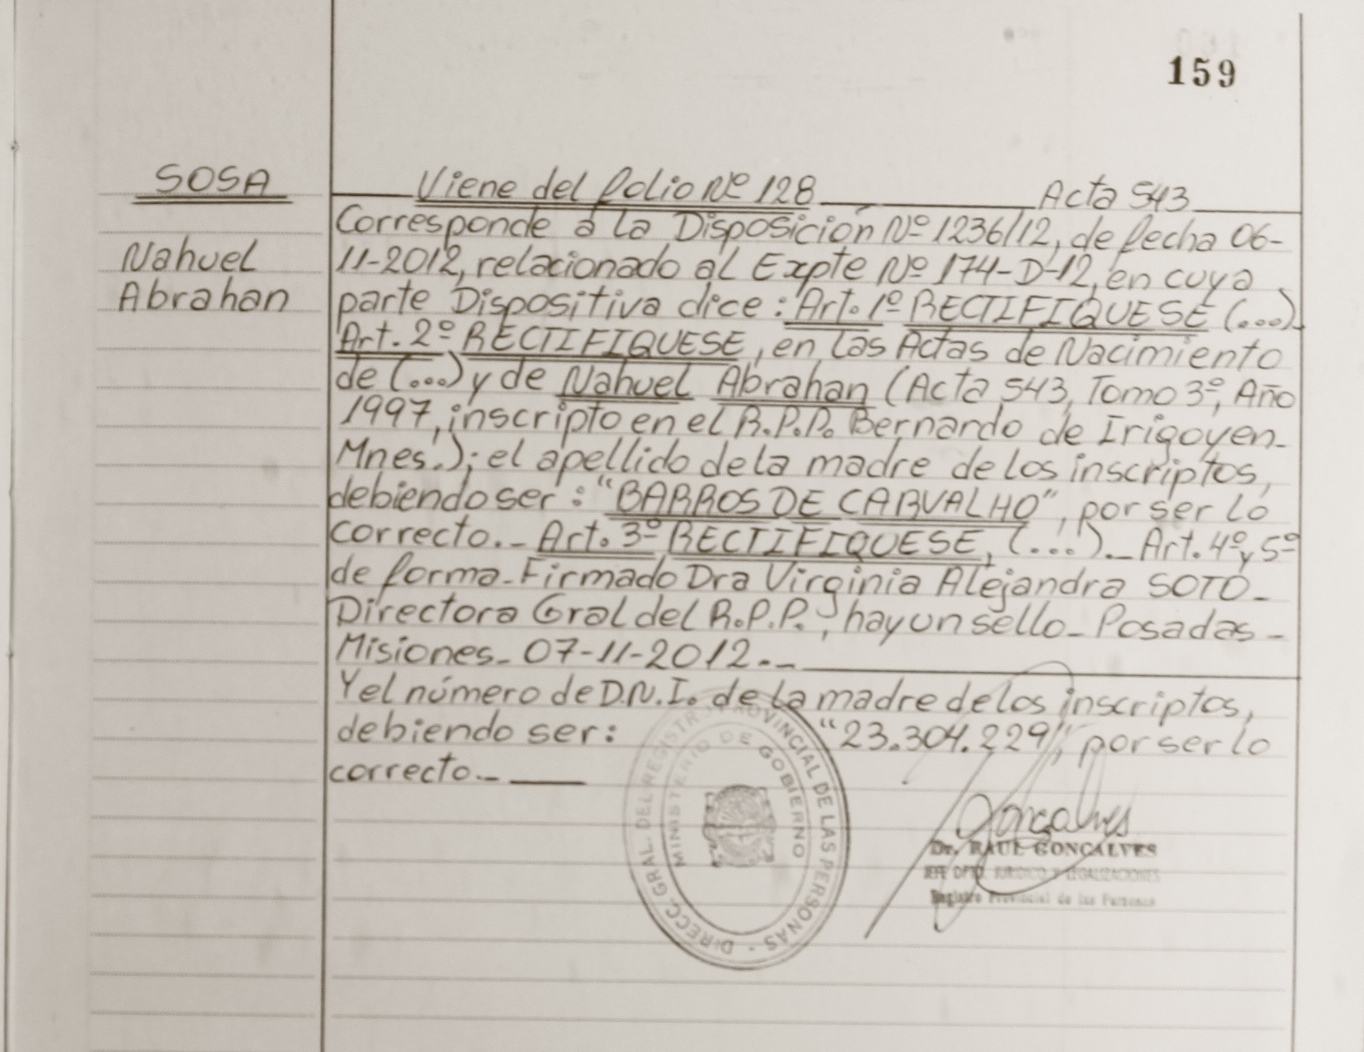 159
SOSA
Nahuel
Abrahan
Viene del folio Nº 128 Acta 543
Corresponde a la Disposición Nº 1236/12, de fecha 06-
11-2012, relacionado al Expte Nº 174-D-12, en cuya
parte Dispositiva dice: Art. 1º RECTIFIQUESE (...)
Art. 2º RECTIFIQUESE, en las Actas de Nacimiento
de (...) y de Nahuel Abrahan (Acta 543, Tomo 3º, Año
1997, inscripto en el R.P.P. Bernardo de Irigoyen-
Mnes.); el apellido de la madre de los inscriptos,
debiendo ser: "BARROS DE CARVALHO", por ser lo
correcto.- Art. 3º RECTIFIQUESE, (...).- Art. 4º y 5º
de forma- Firmado Dra Virginia Alejandra SOTO-
Directora Gral del R.P.P., hay un sello- Posadas-
Misiones- 07-11-2012.-
Y el número de D.N.I. de la madre de los inscriptos,
debiendo ser: "23.304.229", por ser lo
correcto.-
DIRECC. GRAL. DEL REGISTRO PROVINCIAL DE LAS PERSONAS -
MINISTERIO DE GOBIERNO
Gonçalves
Dr. RAUL GONCALVES
JEFE DPTO. JURIDICO Y LEGALIZACIONES
Registro Provincial de las Personas